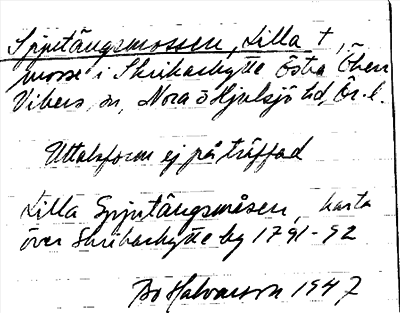 Spjutängsmossen, Lilla †,
mosse i Skrikarhytte Östra Öken
Vikers sn, Nora o Hjulsjö bd, Ör. l.
Uttalsform ej påträffad
Lilla Spjutängsmåsen, karta
över Skrikarhytte by 1791-92
Bo Halvarson 1947